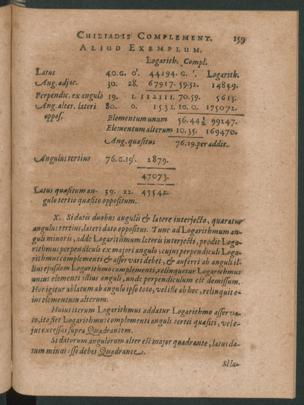 CHILIADIS COMPLEMENT. 159
ALIUD EXEMPLUM.
Logarith. Compl.
Latus 40. G. 0'. 44194. G. '. Logarith.
Ang. adjac. 30. 28. 67917. 59.32. 14859.
Perpendic. ex angulo 19. 1. 112111. 70.59. 5613.
Ang. alter. lateri 80. 0. 1531. 10.0. 175072.
oppos. Elementum unum 56.44 99147.
Elementum alterum 10.35. 169470.
Ang. quæsitus 76.19. per addit.
Angulus tertius 76. G. 19'. 2879.
47073.
Latus quæsitum an- 39. 22. 45542.
gulo tertio quæsito oppositum.
X. Si datis duobus angulis & latere interjecto, quæratur
angulus tertius, lateri dato oppositus. Tunc ad Logarithmum an-
guli minoris, adde Logarithmum lateris interjecti, prodit Loga-
rithmus perpendicularis ex majori angulo: cujus perpendiculi Loga-
rithmus complementi est asservari debet, & auferri ab anguli il-
lius ejusdem Logarithmo complementi, relinquetur Logarithmus
unius elementi illius anguli, unde perpendiculum est demissum.
Hoc igitur ablatum ab angulo ipso toto, vel ille ab hoc, relinquit e-
jus elementum alterum.
Hujus iterum Logarithmus addatur Logarithmo asserva-
to, ita fiet Logarithmus complementi anguli tertii quæsiti, vel e-
jus excessus supra Quadrantem.
Si datorum angulorum alter est major quadrante, latus da-
tum minui esse debet Quadrante.